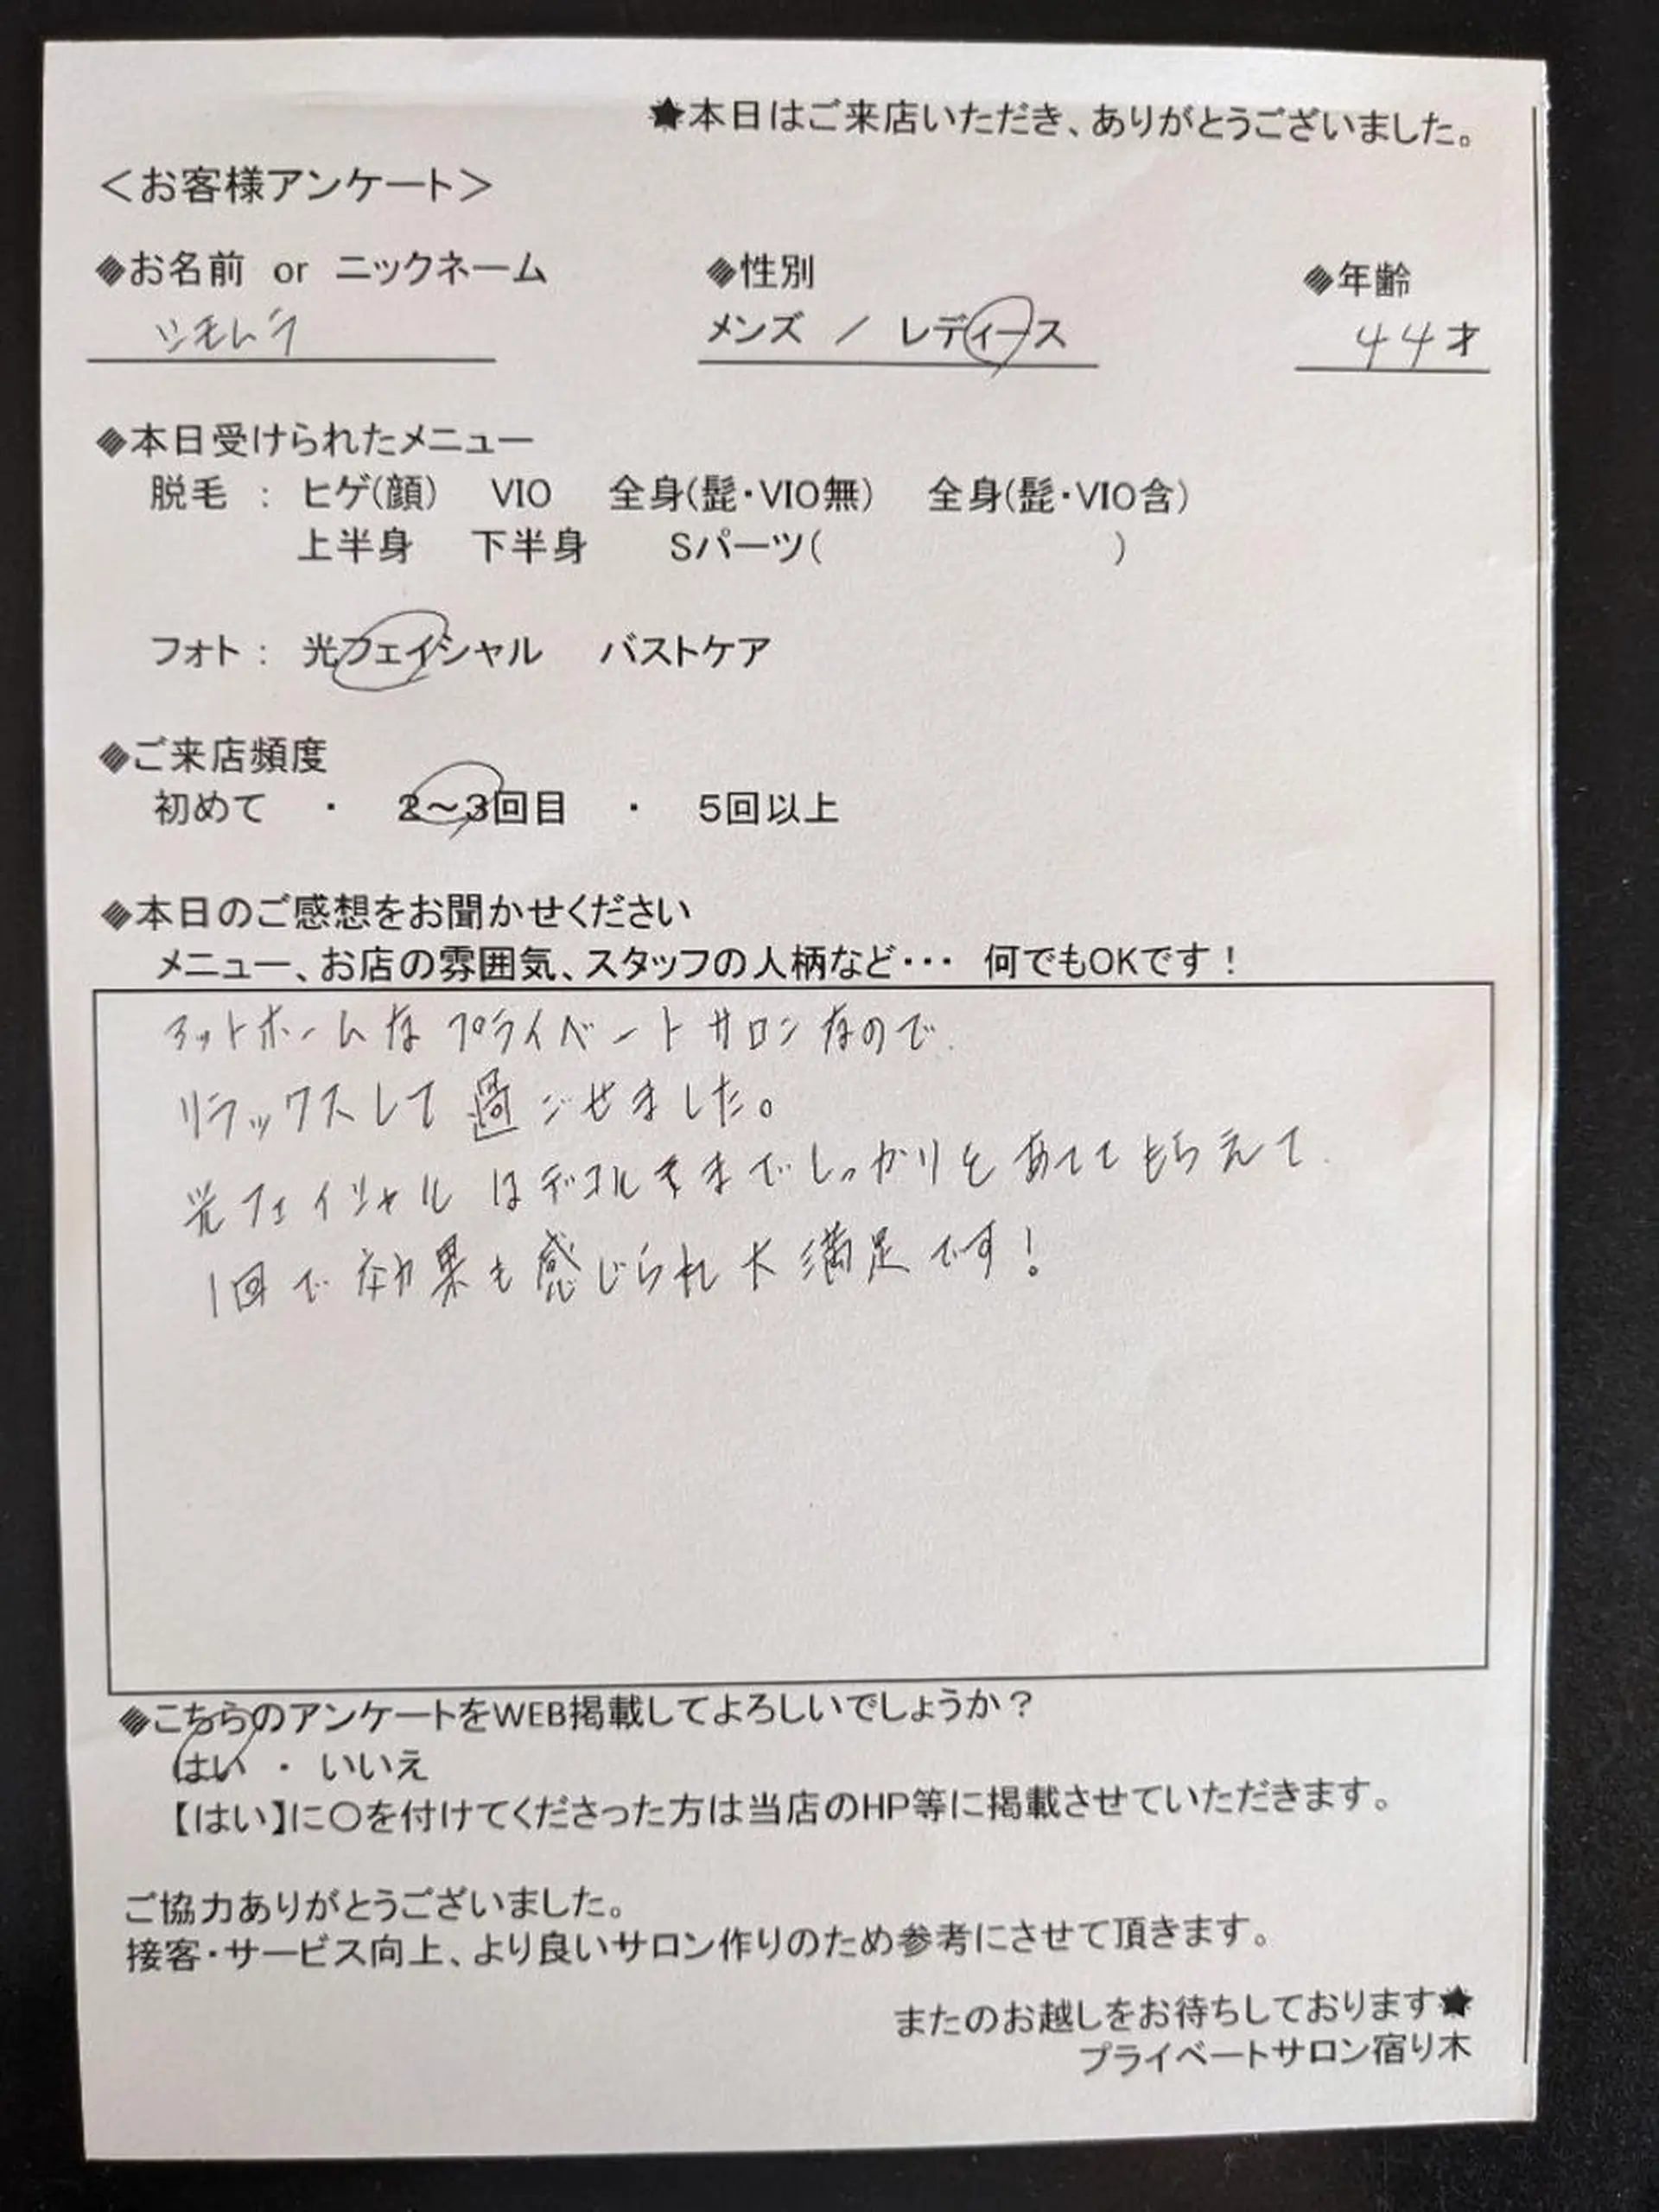 ★本日はご来店いただき、ありがとうございました。
＜お客様アンケート＞
◆お名前 or ニックネーム ◆性別 ◆年齢
シモムラ メンズ ／ レディース 44才
◆本日受けられたメニュー
脱毛 ： ヒゲ(顔) VIO 全身(髭・VIO無) 全身(髭・VIO含)
上半身 下半身 Sパーツ( )
フォト： 光フェイシャル バストケア
◆ご来店頻度
初めて ・ 2～3回目 ・ 5回以上
◆本日のご感想をお聞かせください
メニュー、お店の雰囲気、スタッフの人柄など・・・ 何でもOKです！
アットホームな プライベートサロンなので、
リラックスして過ごせました。
光フェイシャルはデコルテまでしっかりとあててもらえて、
1回で効果も感じられ大満足です！
◆こちらのアンケートをWEB掲載してよろしいでしょうか？
はい ・ いいえ
【はい】に〇を付けてくださった方は当店のHP等に掲載させていただきます。
ご協力ありがとうございました。
接客・サービス向上、より良いサロン作りのため参考にさせて頂きます。
またのお越しをお待ちしております★
プライベートサロン宿り木